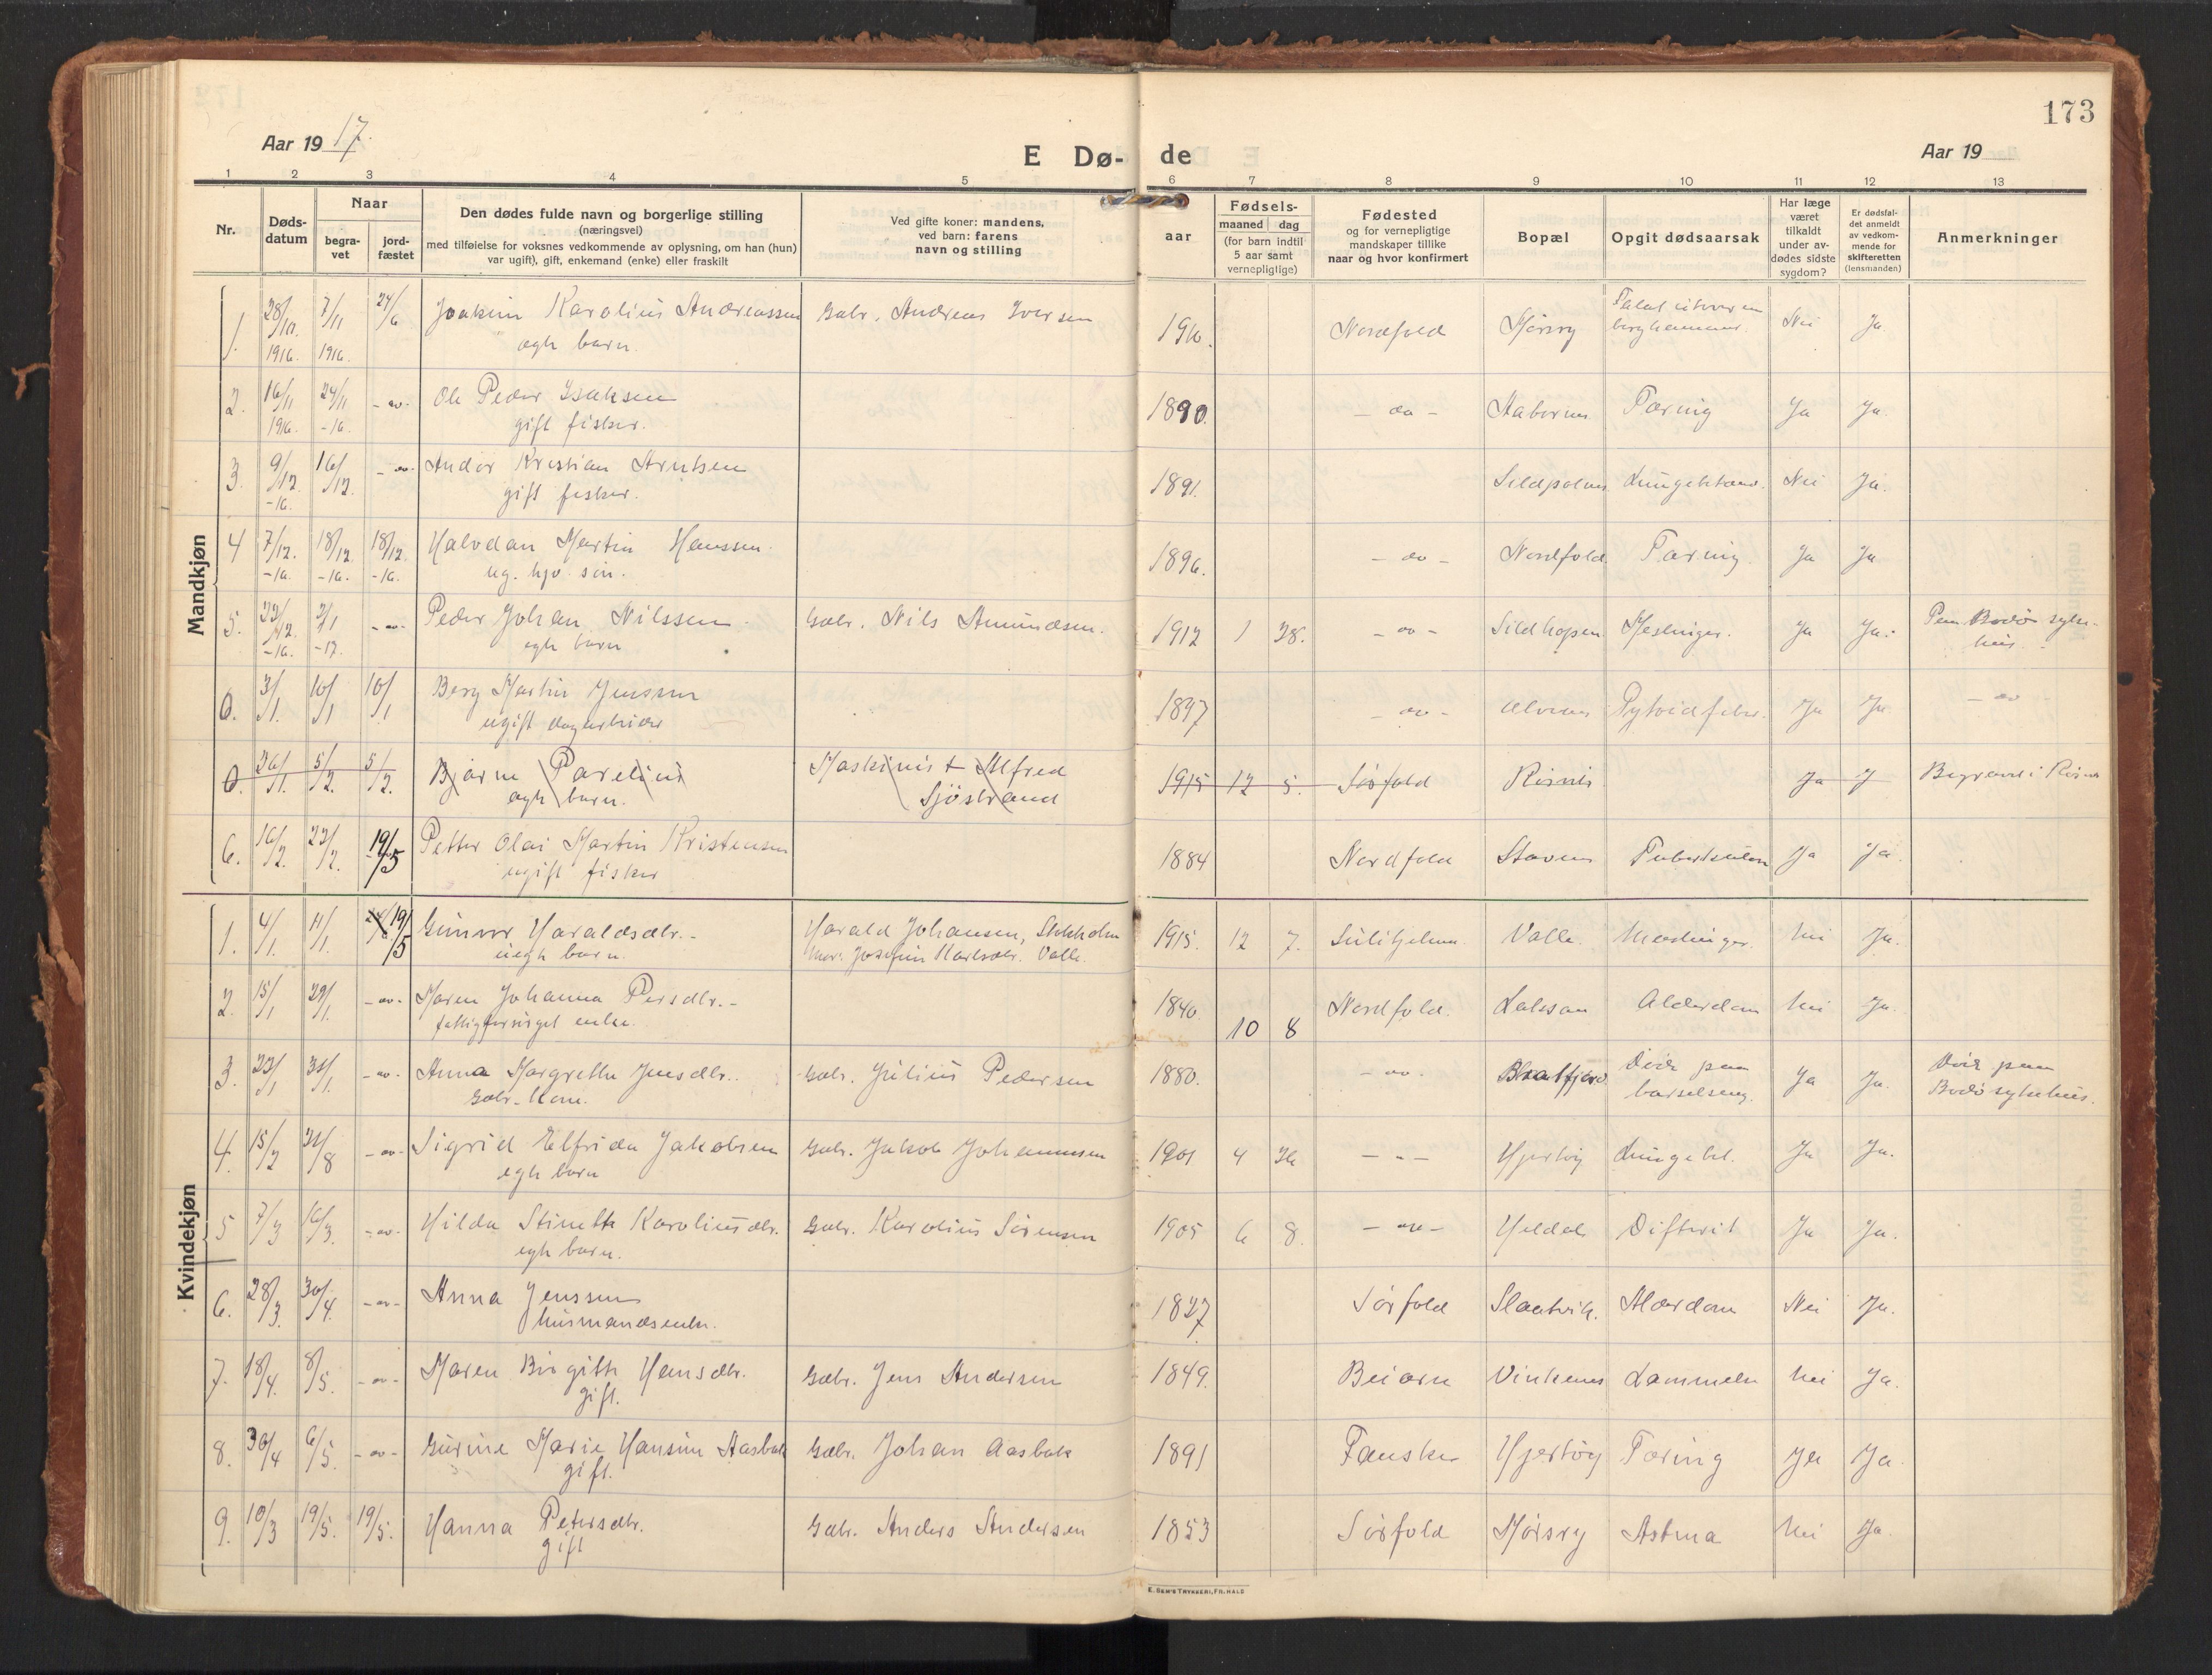 173
Aar 19 17.
E Dø- de
Aar 19
1 2 3 4 5 6 7 8 9 10 11 12 13
Nr.
Døds-
datum
Naar
begra-
vet
jord-
fæstet
Den dødes fulde navn og borgerlige stilling
(næringsvei)
med tilføielse for voksnes vedkommende av oplysning, om han (hun)
var ugift), gift, enkemand (enke) eller fraskilt
Ved gifte koner: mandens,
ved barn: farens
navn og stilling
Fødsels-
aar
maaned dag
(for barn indtil
5 aar samt
vernepligtige)
Fødested
og for vernepligtige
mandskaper tillike
naar og hvor konfirmert
Bopæl
Opgit dødsaarsak
Har læge
været
tilkaldt
under av-
dødes sidste
sygdom?
Er dødsfal-
det anmeldt
av vedkom-
mende for
skifteretten
(lensmanden)
Anmerkninger
Mandkjøn
1. 28/10 7/11 24/6 Joakim Karolius Andreassen Gabr. Andreas Iversen 1916. Nordfold Mørsry Nei Ja
1916. 1916. egte barn.
2. 16/11 24/11 -do- Ole Peder Isaksen 1890. -do- Tæring Ja Ja.
1916. -16. gift fisker.
3. 9/12 16/12 -do- Andor Kristian Arntsen 1891. Nei Ja.
-16. gift fisker.
4 7/12. 18/12 18/12 Halvdan Martin Hanssen 1896. -do- Nordfold Tæring Ja Ja
-16. -16. -16. ug.
5. 2/1 -do- Peder Johan Nilssen Gabr. Nils Amundsen. 1912 1 28. -do- Sildhopen Meslinger. Ja Ja. Paa Bodø syke-
-16. -17. egte barn hus.
6. 3/1. 10/1 10/1 Berg Martin Jenssen -do- Ja Ja -do-
ugift dagarbeider
26/1. 5/2. 5/2. Bjarne Parelius Maskinist Alfred 1915 12 5. Sørfold Røsvik Ja J Begravet i Røsvik
egte barn. Sjöstrand
6. 16/2. 23/2. 19/5 Petter Olai Martin Kristensen 1884 Nordfold Ja Ja.
ugift fisker
Kvindekjøn
1. 4/1. 11/1. 19/5 Gunvor Haraldsdtr. Harald Johansen, 1915. 12 7. Sulitjelma. Valle. Meslinger. Nei Ja.
uegte barn. Mor: Josefine Karlsdtr. Valle.
2. 15/1 29/1. -do- Maren Johanna Persdtr. 1840. 10 8 Nordfold. Laksaa Alderdom Nei Ja.
fattigforsørget enke.
3. 23/1 31/1. -do- Anna Margrethe Jensdtr. Gabr. Julius Pedersen 1880. -do- Død paa Ja Ja. Død paa
Gabr. kone. barselseng. Bodø sykehus.
4. 15/2 -do- Sigrid Elfrida Jakobsen Gabr. Jakob Johannesen 1901 4 26 -"- Hjertøy Lungebet. Ja Ja.
egte barn
5 7/3 16/3. -do- Hilda Karoliusdtr. Gabr. Karolius Sørensen 1905 6 8. -do- Heldal Difterit Ja Ja.
egte barn.
6. 28/3. 30/4. -do- Anna Jenssen 1827 Sørfold Slaatvik. Alderdom Nei Ja.
husmandsenke.
7. 18/4. 8/5. -do- Maren Birgitte Hansdtr. Gabr. Jens Andersen 1849. Beiarn Vinkenes Lammelse Nei Ja.
gift.
8. 30/4 6/5. -do- Gurine Marie Hansine Aasbak Gabr. Johan Aasbak 1891 Fauske Hjertøy Tæring Ja Ja
gift.
9. 10/3 19/5. 19/5. Hanna Petersdtr. Gabr. Anders Andersen 1853 Sørfold Mørsry Astma Nei Ja.
gift
E. SEM'S TRYKKERI, FR.HALD